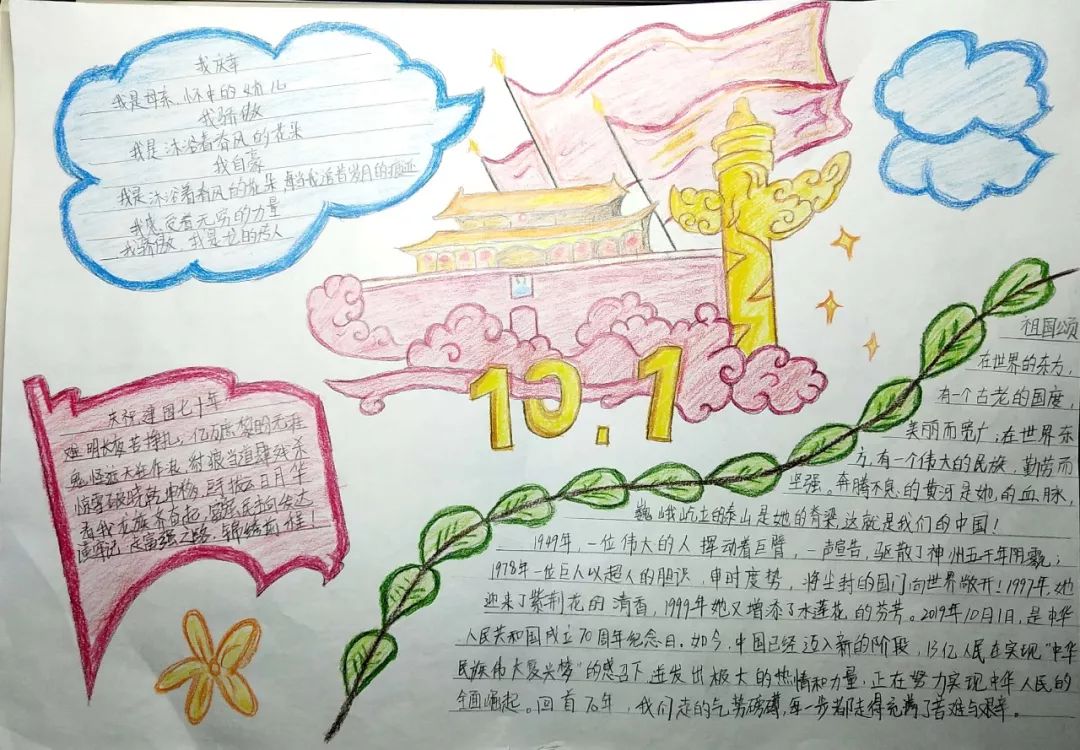 我庆幸
我是母亲怀中的婴儿
我骄傲
我是沐浴着春风的花朵
我自豪
我是沐浴着春风的花朵 每当我沿着岁月的痕迹
我感受着无穷的力量
我骄傲 我是龙的传人
10.1
庆祝建国七十年
难明长夜苦挣扎,亿万庶黎的无涯
鬼怪
看我龙族齐奋起,富强
走富强之路,锦绣前程!
祖国颂
在世界的东方,
有一个古老的国度,
美丽而宽广;在世界东
方,有一个伟大的民族,勤劳而
坚强。奔腾不息的黄河是她的血脉,
巍峨屹立的泰山是她的脊梁,这就是我们的中国!
1949年,一位伟大的人挥动着巨臂,一声宣告,驱散了神州五千年阴霾;
1978年一位巨人以超人的胆识,审时度势,将尘封的国门向世界敞开!1997年,她
迎来了紫荆花的清香,1999年她又增添了水莲花的芬芳。2019年10月1日,是中华
人民共和国成立70周年纪念日。如今,中国已经迈入新的阶段,13亿人民在实现“中华
民族伟大复兴梦”的感召下,迸发出极大的热情和力量,正在努力实现中华人民的
全面崛起。回首70年,我们走的气势磅礴,每一步都走得充满了苦难与艰辛。